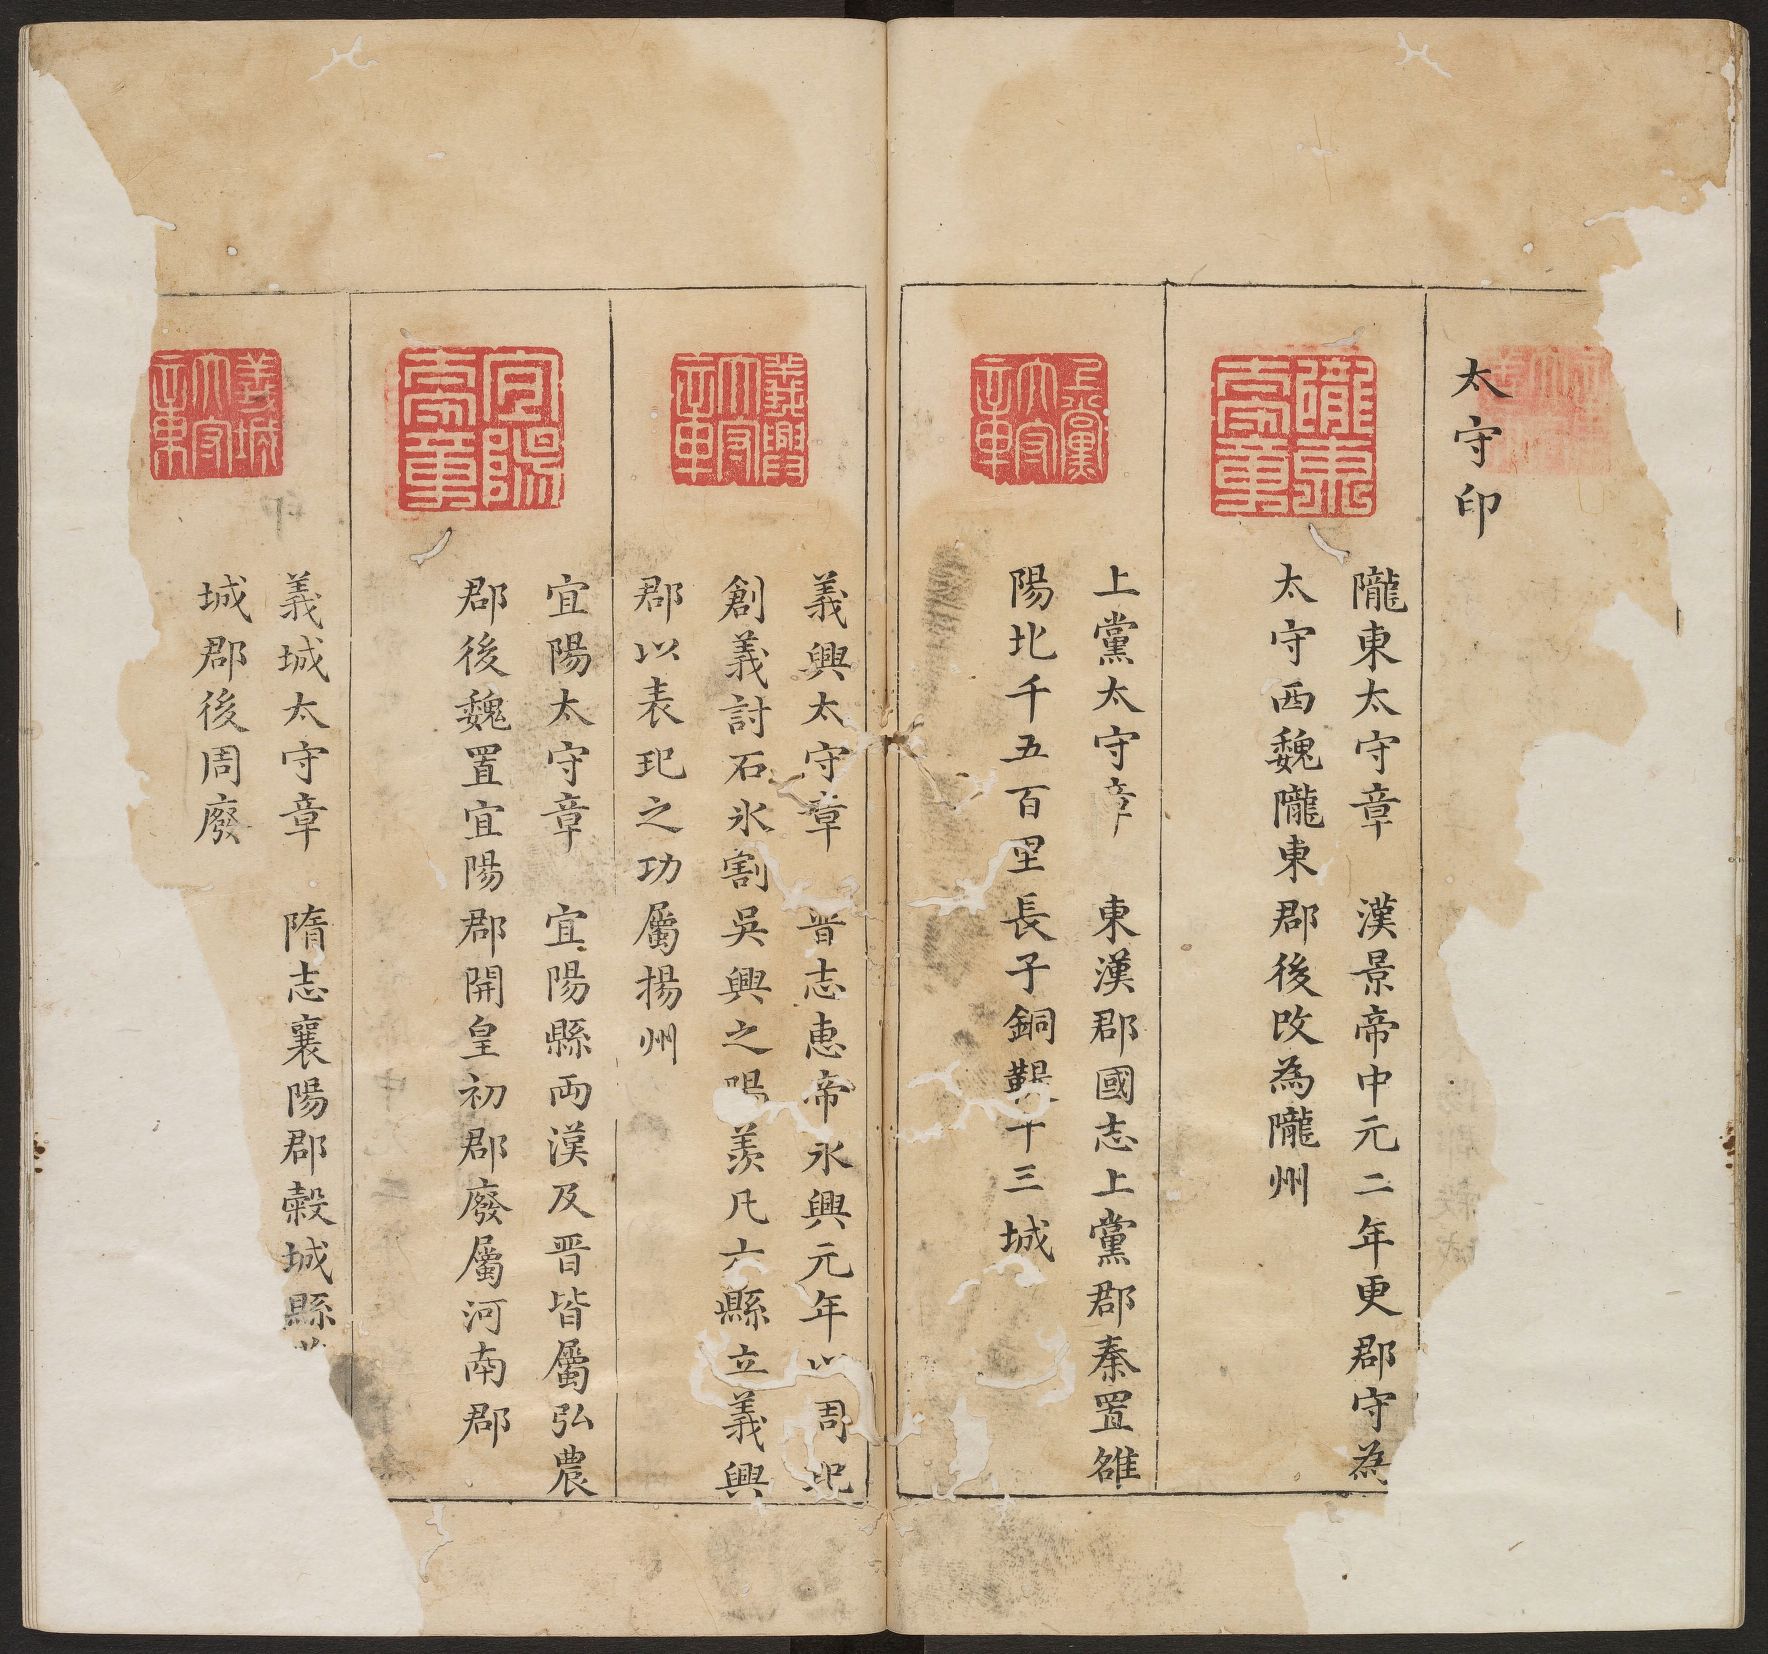 太守印
隴東太守章　漢景帝中元二年更郡守為
太守西魏隴東郡後改為隴州
上黨太守章　東漢郡國志上黨郡秦置雒
陽北千五百里長子銅鞮十三城
義興太守章　晉志惠帝永興元年以周玘
創義討石氷割吳興之陽羨凡六縣立義興
郡以表玘之功屬揚州
宜陽太守章　宜陽縣兩漢及晋皆屬弘農
郡後魏置宜陽郡開皇初郡廢屬河南郡
義城太守章　隋志襄陽郡榖城縣
城郡後周廢
隴東太守章
上黨太守章
義興太守章
宜陽太守章
義城太守章